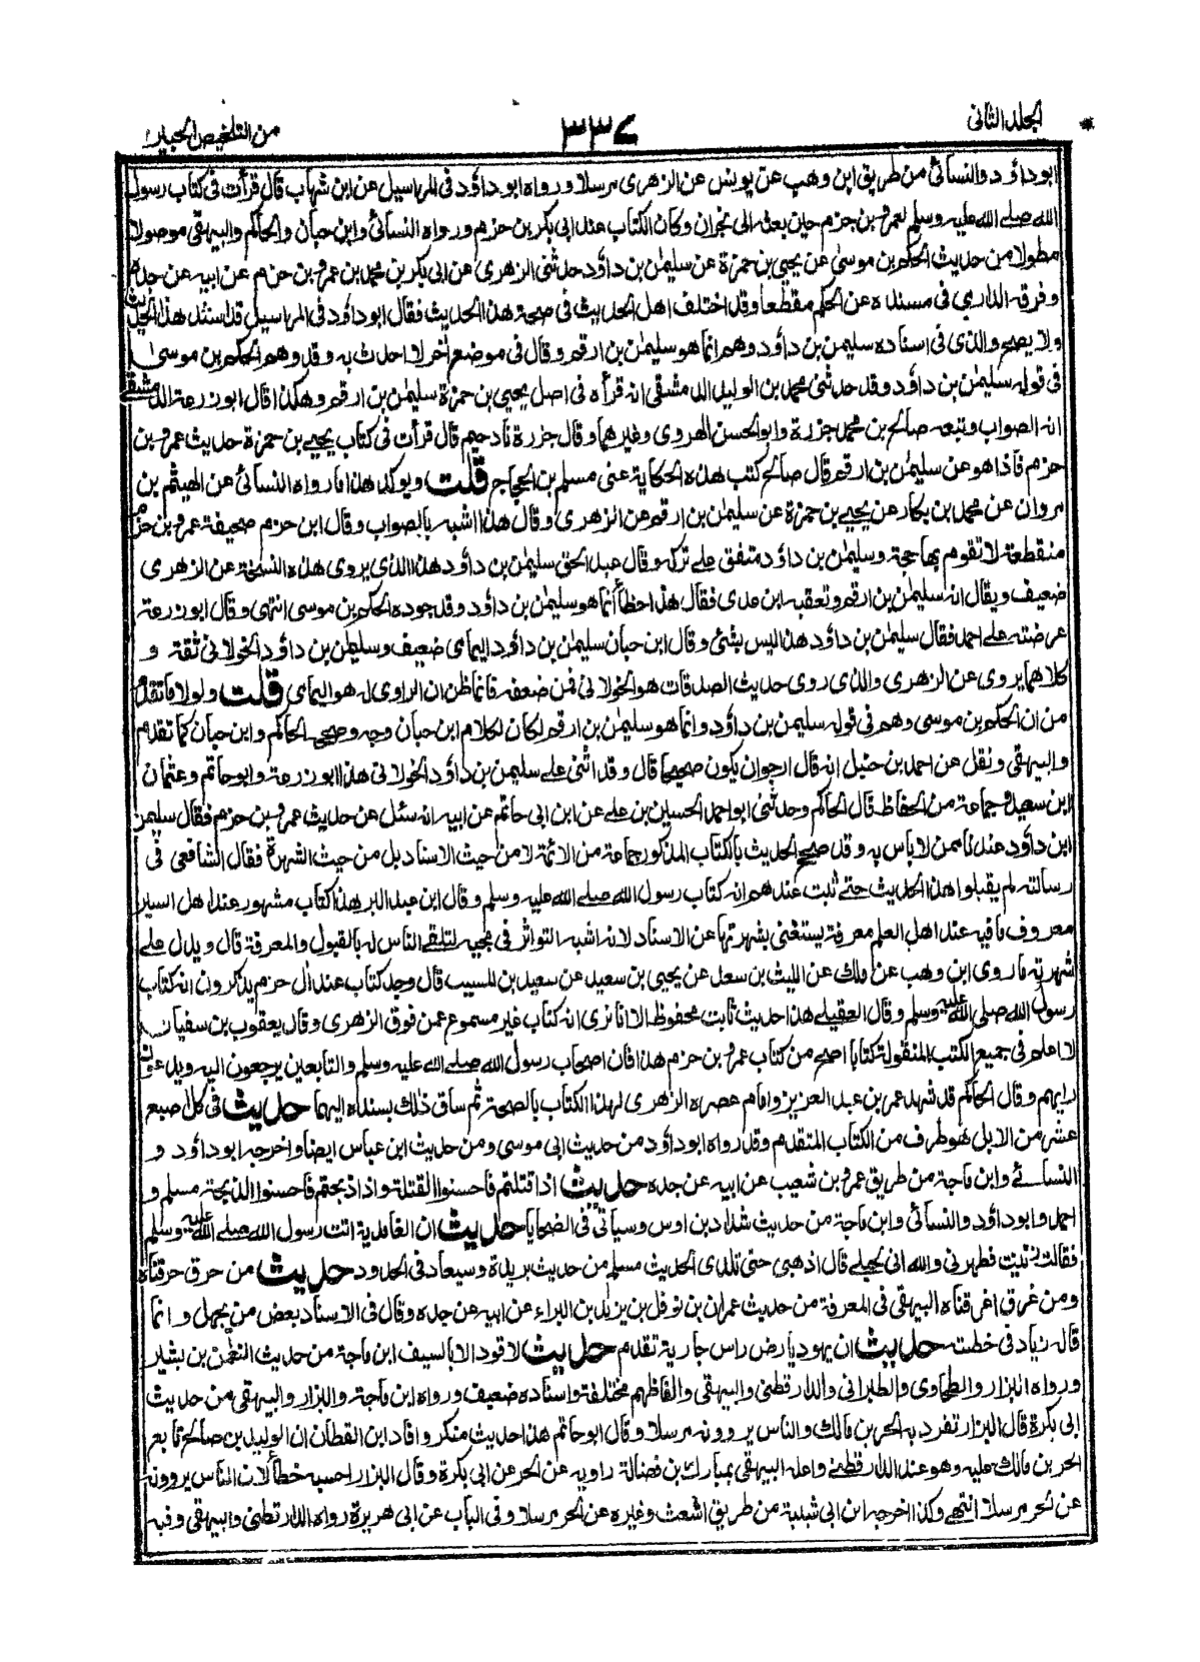 الجلد الثانى
٣٣٧
من التلخيص الحبير
ابوداؤد والنسائى من طريق ابن وهب عن يونس عن الزهرى مرسلا ورواه ابوداؤد فى المراسيل عن ابن شهاب قال قرأت فى كتاب رسول
الله صلے الله عليه وسلم لعمرو بن حزم حين بعثه الى نجران وكان الكتاب عند ابى بكر بن حزم ورواه النسائى وابن حبان والحاكم والبيهقى موصولا
مطولا من حديث الحكم بن موسى عن يحيى بن حمزة عن سليمٰن بن داؤد حدثنى الزهرى عن ابى بكر بن محمد بن عمرو بن حزم عن ابيه عن جده
وفرقه الدارمى فى مسنده عن الحكم مقطعا وقد اختلف اهل الحديث فى صحة هذا الحديث فقال ابوداؤد فى المراسيل قد اسند هذا الحديث
ولا يصح والذى فى اسناده سليمن بن داؤد وهم انما هو سليمٰن بن ارقم وقال فى موضع اٰخر لا احدث به وقد وهم الحكم بن موسىٰ
فى قوله سليمٰن بن داؤد وقد حدثنى محمد بن الوليد الدمشقى انه قرأه فى اصل يحيى بن حمزة سليمٰن بن ارقم وهكذا قال ابوزرعة الدمشقے
انه الصواب وتبعه صالح بن محمد جزرة وابوالحسن الهروى وغيرهما وقال جزرة نا دحيم قال قرأت فى كتاب يحيے بن حمزة حديث عمرو بن
حزم فاذا هو عن سليمٰن بن ارقم قال صالح كتب هذه الحكاية عنى مسلم بن الحجاج قلت ويؤكد هذا ما رواه النسائى عن الهيثم بن
مروان عن محمد بن بكار عن يحيے بن حمزة عن سليمٰن بن ارقم عن الزهرى وقال هذا اشبه بالصواب وقال ابن حزم صحيفة عمرو بن حزم
منقطعة لا تقوم بها حجة وسليمٰن بن داؤد متفق علے تركه وقال عبد الحق سليمٰن بن داؤد هذا الذى يروى هذه النسخة عن الزهرى
ضعيف ويقال انه سليمٰن بن ارقم وتعقبه ابن عدى فقال هذا خطأ انما هو سليمٰن بن داؤد وقد جوده الحكم بن موسى انتهى وقال ابوزرعة
عرضته علے احمد فقال سليمٰن بن داؤد هذا ليس بشئ وقال ابن حبان سليمٰن بن داؤد اليمامى ضعيف وسليمٰن بن داؤد الخولانى ثقة و
كلاهما يروى عن الزهرى والذى روى حديث الصدقات هو الخولانى فمن ضعفه فانما ظن ان الراوى له هو اليمامى قلت ولولا ما تقدم
من ان الحكم بن موسى وهم فى قوله سليمن بن داؤد وانما هو سليمٰن بن ارقم لكان لكلام ابن حبان وجه وصححه الحاكم وابن حبان كما تقدم
والبيهقى ونقل عن احمد بن حنبل انه قال ارجو ان يكون صحيحا قال وقد اثنى علے سليمن بن داؤد الخولانى هذا ابوزرعة وابوحاتم وعثمان
ابن سعيد وجماعة من الحفاظ قال الحاكم وحدثنى ابو احمد الحسين بن علے عن ابن ابى حاتم عن ابيه انه سئل عن حديث عمرو بن حزم فقال سليمن
ابن داؤد عندنا ممن لا باس به وقد صحح الحديث بالكتاب المذكور جماعة من الائمة لا من حيث الاسناد بل من حيث الشهرة فقال الشافعى فى
رسالته لم يقبلوا هذا الحديث حتے ثبت عندهم انه كتاب رسول الله صلے الله عليه وسلم وقال ابن عبد البر هذا كتاب مشهور عند اهل السير
معروف ما فيه عند اهل العلم معرفة يستغنى بشهرتها عن الاسناد لانه اشبه التواتر فى مجيئه لتلقے الناس له بالقبول والمعرفة قال ويدل علے
شهرته ما روى ابن وهب عن مٰلك عن الليث بن سعد عن يحيى بن سعيد عن سعيد بن المسيب قال وجد كتاب عند اٰل حزم يذكرون انه كتاب
رسول الله صلى الله عليه وسلم وقال العقيلے هذا حديث ثابت محفوظ الا انا نرى انه كتاب غير مسموع عمن فوق الزهرى وقال يعقوب بن سفيان
لا اعلم فى جميع الكتب المنقولة كتابا اصح من كتاب عمرو بن حزم هذا فان اصحاب رسول الله صلے الله عليه وسلم والتابعين يرجعون اليه ويدعون
رايهم وقال الحاكم قد شهد عمر بن عبد العزيز وامام عصره الزهرى لهذا الكتاب بالصحة ثم ساق ذلك بسنده اليهما حديث فى كل اصبع
عشر من الابل هو طرف من الكتاب المتقدم وقد رواه ابوداؤد من حديث ابى موسى ومن حديث ابن عباس ايضا واخرجه ابوداؤد و
النسائے وابن ماجة من طريق عمرو بن شعيب عن ابيه عن جده حديث اذا قتلتم فاحسنوا القتلة واذا ذبحتم فاحسنوا الذبحة مسلم و
احمد وابوداؤد والنسائى وابن ماجة من حديث شداد بن اوس وسياتى فى الضحايا حديث ان الغامدية اتت رسول الله صلے الله عليه وسلم
فقالت زنيت فطهرنى والله انى لحبلے قال اذهبى حتى تلدى الحديث مسلم من حديث بريدة وسيعاد فى الحدود حديث من حرق حرقناه
ومن غرق اغرقناه البيهقى فى المعرفة من حديث عمران بن نوفل بن يزيد بن البراء عن ابيه عن جده وقال فى الاسناد بعض من يجهل وانما
قاله زياد فى خطبته حديث ان يهوديا رض راس جارية تقدم حديث لا قود الا بالسيف ابن ماجة من حديث النعمٰن بن بشير
ورواه البزار والطحاوى والطبرانى والدارقطنى والبيهقى والفاظهم مختلفة واسناده ضعيف ورواه ابن ماجة والبزار والبيهقى من حديث
ابى بكرة قال البزار تفرد به الحر بن مالك والناس يروونه مرسلا وقال ابوحاتم هذا حديث منكر وافاد ابن القطان ان الوليد بن صالح تابع
الحر بن مالك عليه وهو عند الدارقطنے واعله البيهقى بمبارك بن فضالة راويه عن الحر عن ابى بكرة وقال البزار احسبه خطأ لان الناس يروونه
عن الحر مرسلا انتهے وكذا اخرجه ابن ابى شيبة من طريق اشعث وغيره عن الحر مرسلا وفى الباب عن ابى هريرة رواه الدارقطنى والبيهقى وفيه